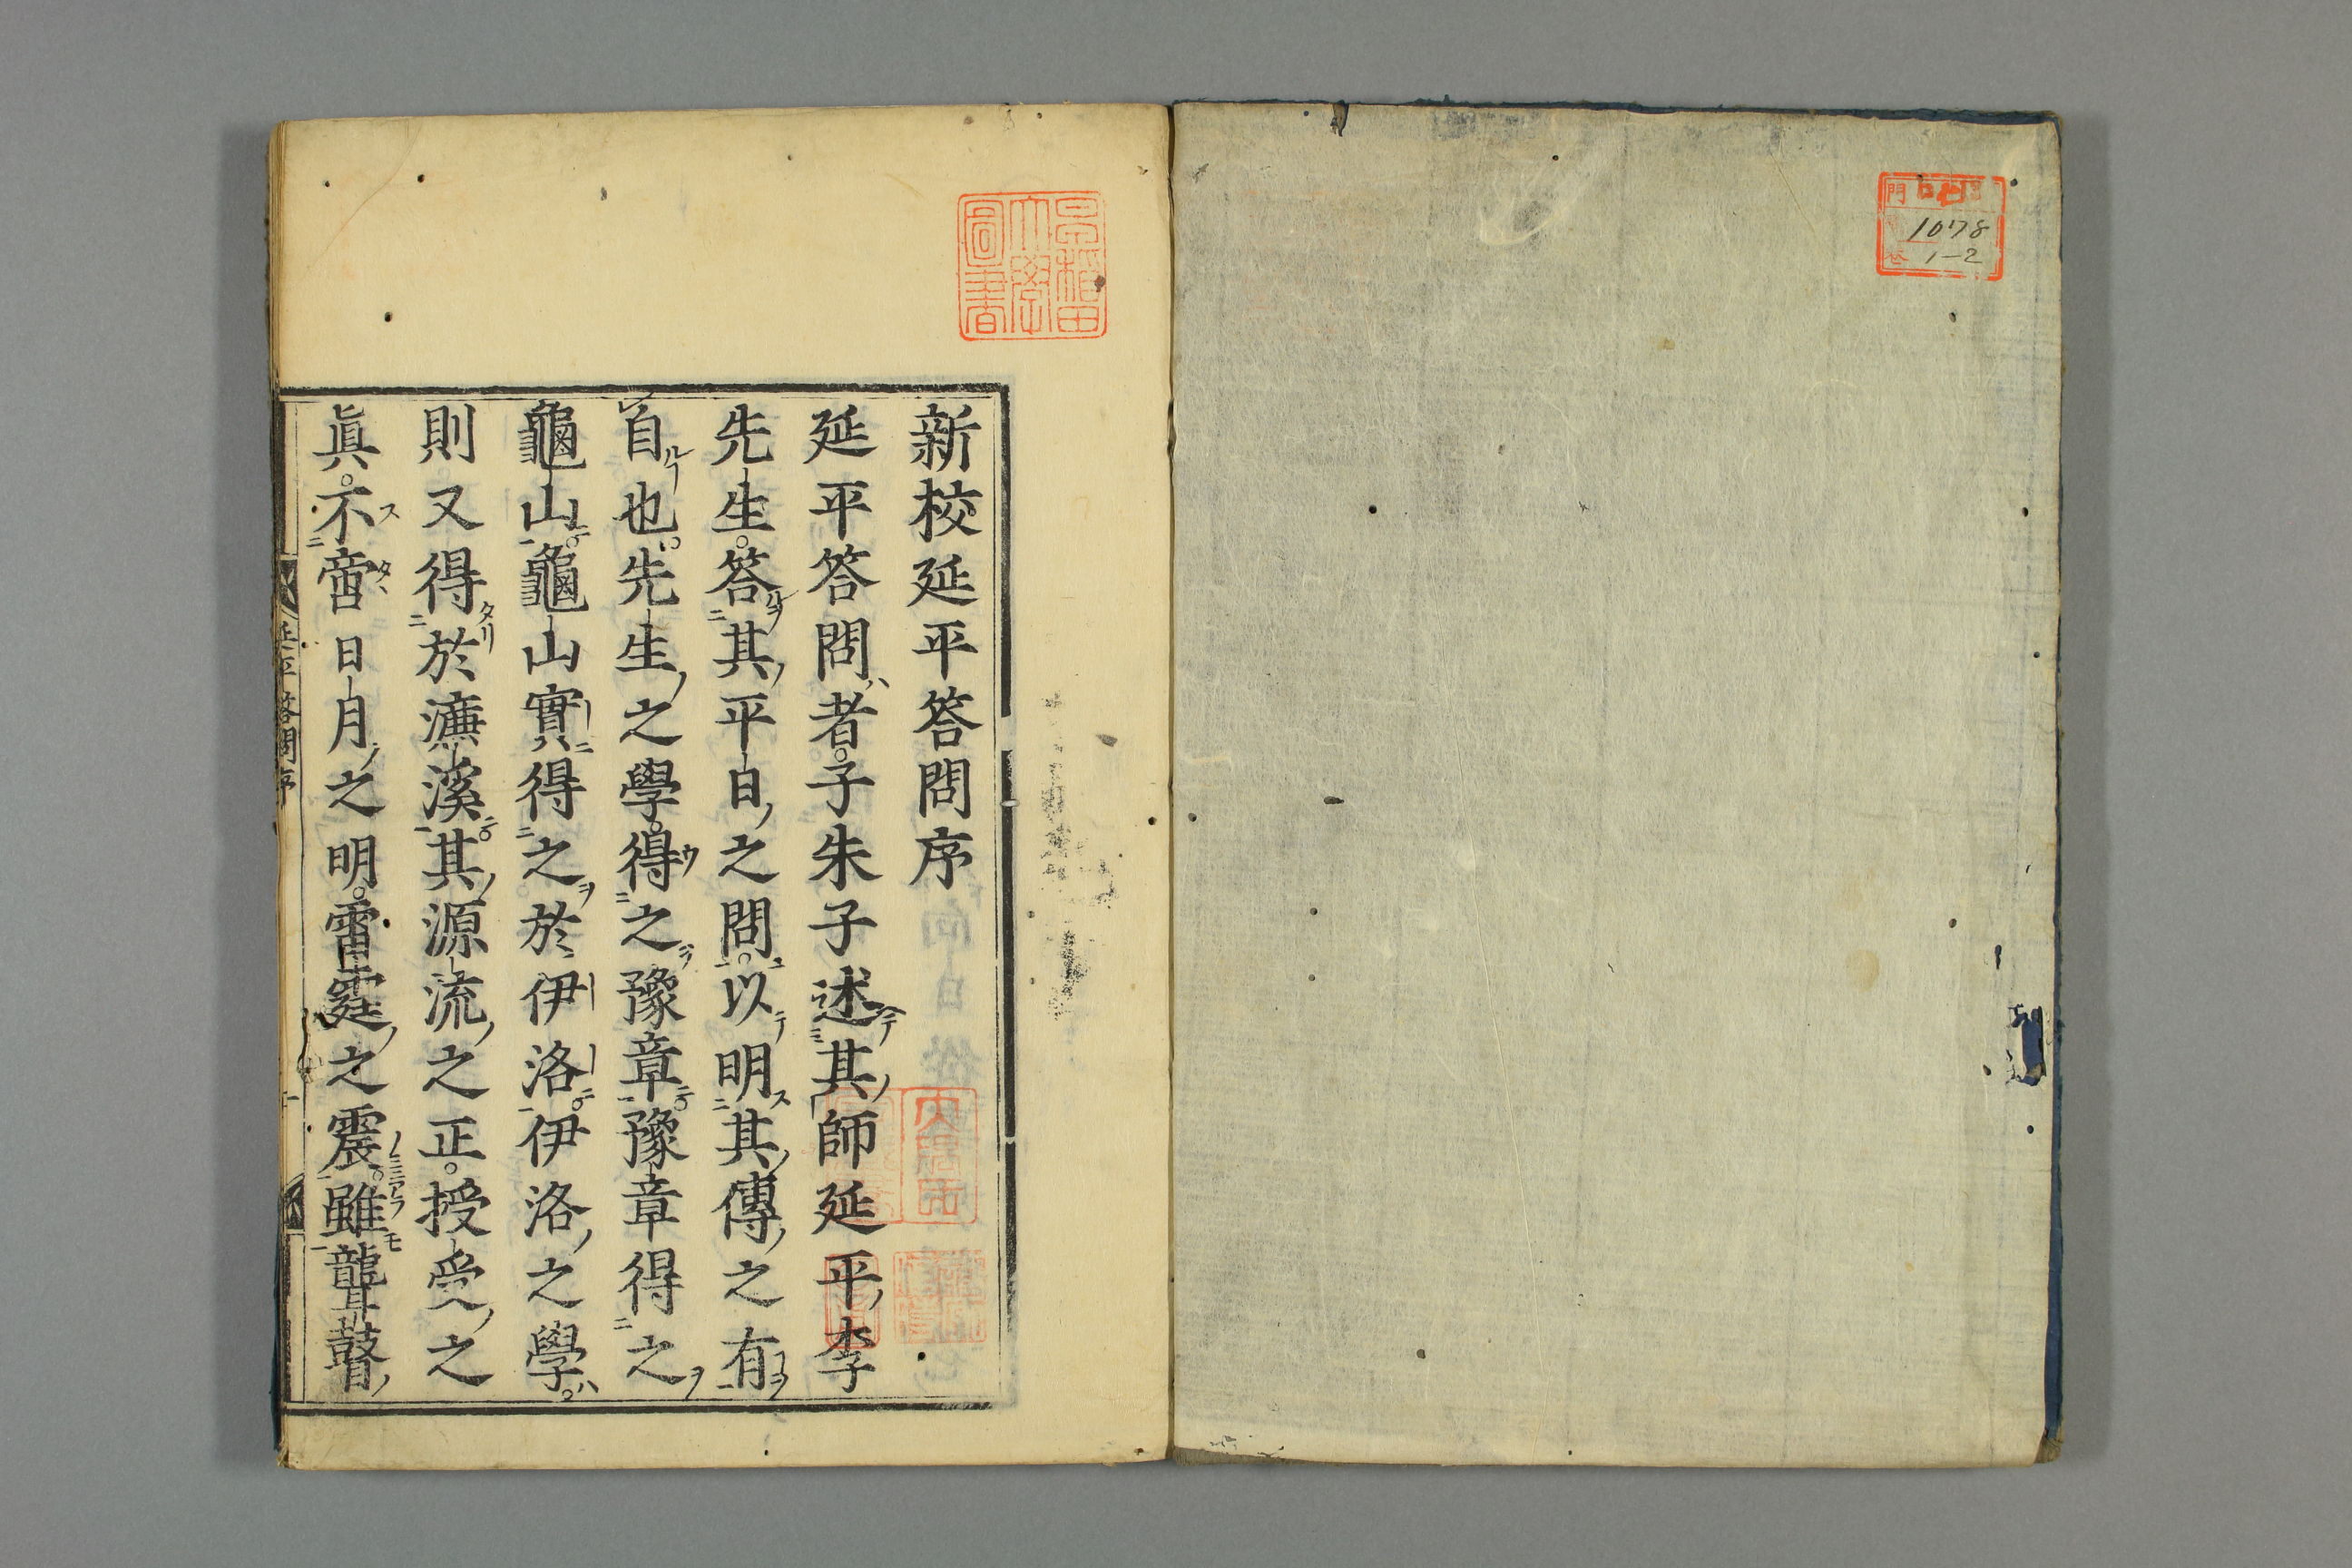 門 ロ13
1078
卷 1-2
早稲田
大學
圖書
新校延平答問序
延平答問者。子朱子述其師延平李
先生。答其平日之問。以明其傳之有
自也。先生之學。得之豫章。豫章得之
龜山。龜山實得之於伊洛。伊洛之學。
則又得於濂溪。其源流之正。授受之
眞。不啻日月之明。雷霆之震。雖聾瞽
延平答問序